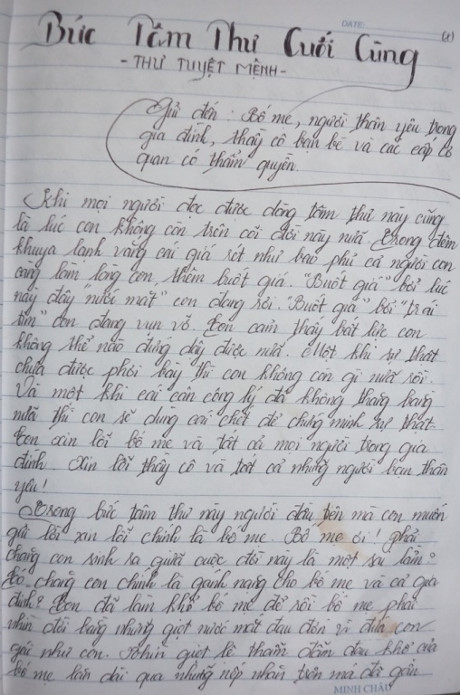 DATE:
(1)
Bức Tâm Thư Cuối Cùng
- THƯ TUYỆT MỆNH -
Gửi đến : Bố mẹ, người thân yêu trong
gia đình, thầy cô bạn bè và các cấp có
quan có thẩm quyền.
Khi mọi người đọc được dòng tâm thư này cũng
là lúc con không còn trên cõi đời này nữa. Trong đêm
khuya lạnh vắng cái giá rét như bao phủ cả người con
càng làm lòng con, thêm buốt giá. "Buốt giá" bởi lúc
này đây "nước mắt" con đang rơi. "Buốt giá" bởi "trái
tim" con đang vụn vỡ. Con cảm thấy bất lực con
không thể nào đứng dậy được nữa. Một khi sự thật
chưa được phơi bày thì con không còn gì nữa rồi.
Và một khi cái cán công lý đã không thăng bằng
nữa thì con sẽ dùng cái chết để chứng minh sự thật.
Con xin lỗi bố mẹ và tất cả mọi người trong gia
đình. Xin lỗi thầy cô và tất cả những người bạn thân
yêu!
Trong bức tâm thư này người đầu tiên mà con muốn
gửi lời xin lỗi chính là bố mẹ. Bố mẹ ơi! phải
chăng con sinh ra giữa cuộc đời này là một sai lầm?
Có chăng con chính là gánh nặng cho bố mẹ và cả gia
đình? Con đã làm khổ bố mẹ để rồi bố mẹ phải
nhìn đời bằng những giọt nước mắt đau đớn vì đứa con
gái như con. Nhìn giọt lệ thấm đẫm đau khổ của
bố mẹ lăn dài qua những nếp nhăn trên má đã gần
MINH CHÂU